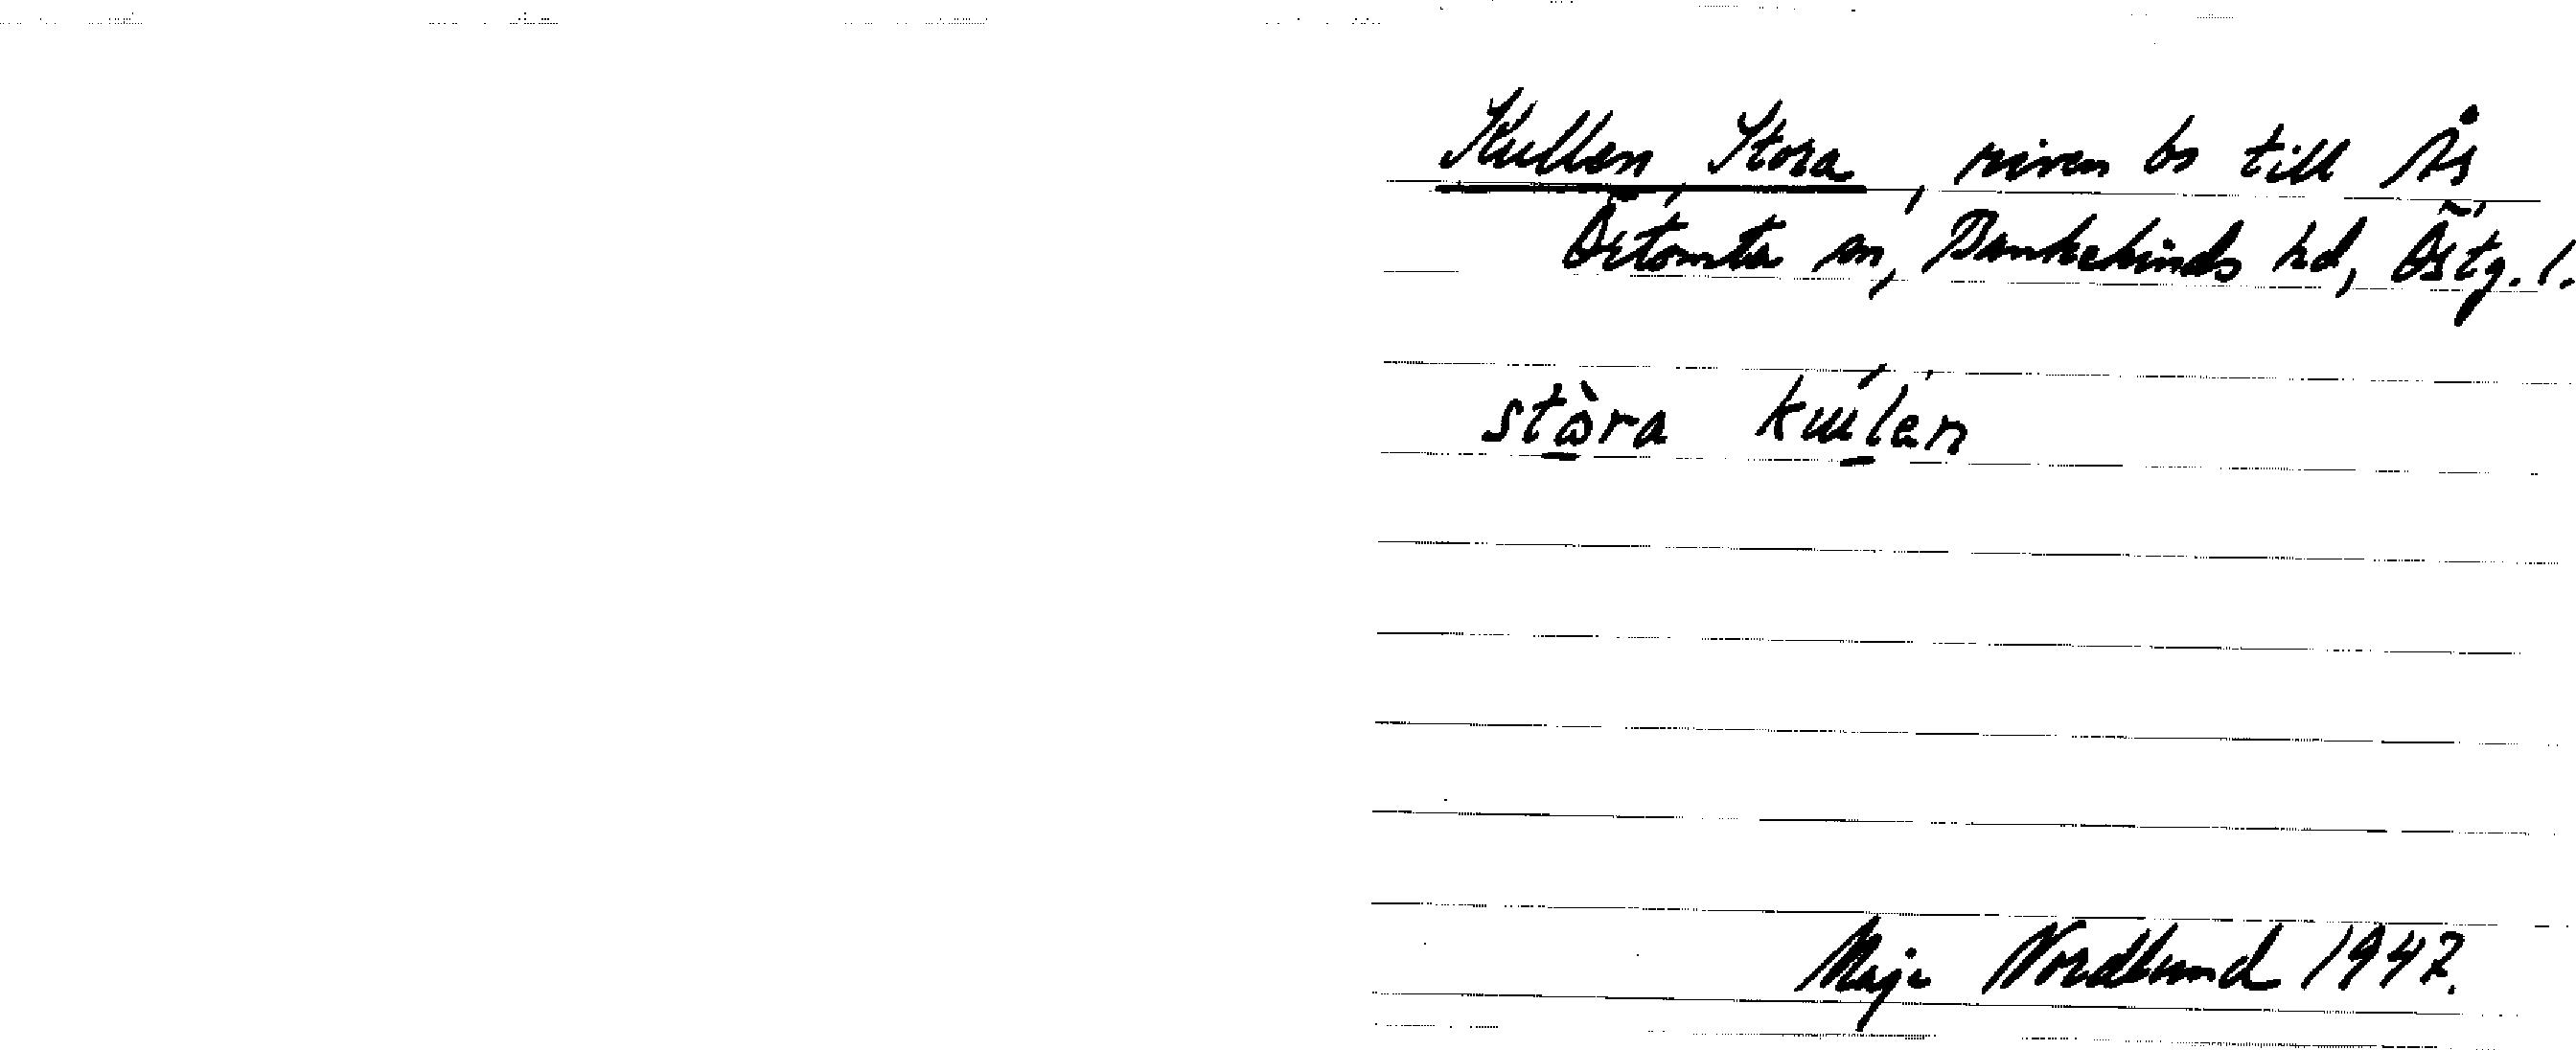 Kullen, Stora, riven bs till Ås
Örtomta sn, Bankekinds hd, Östg. l.
stòra kɯ́lən
Maja Nordlund 1947.